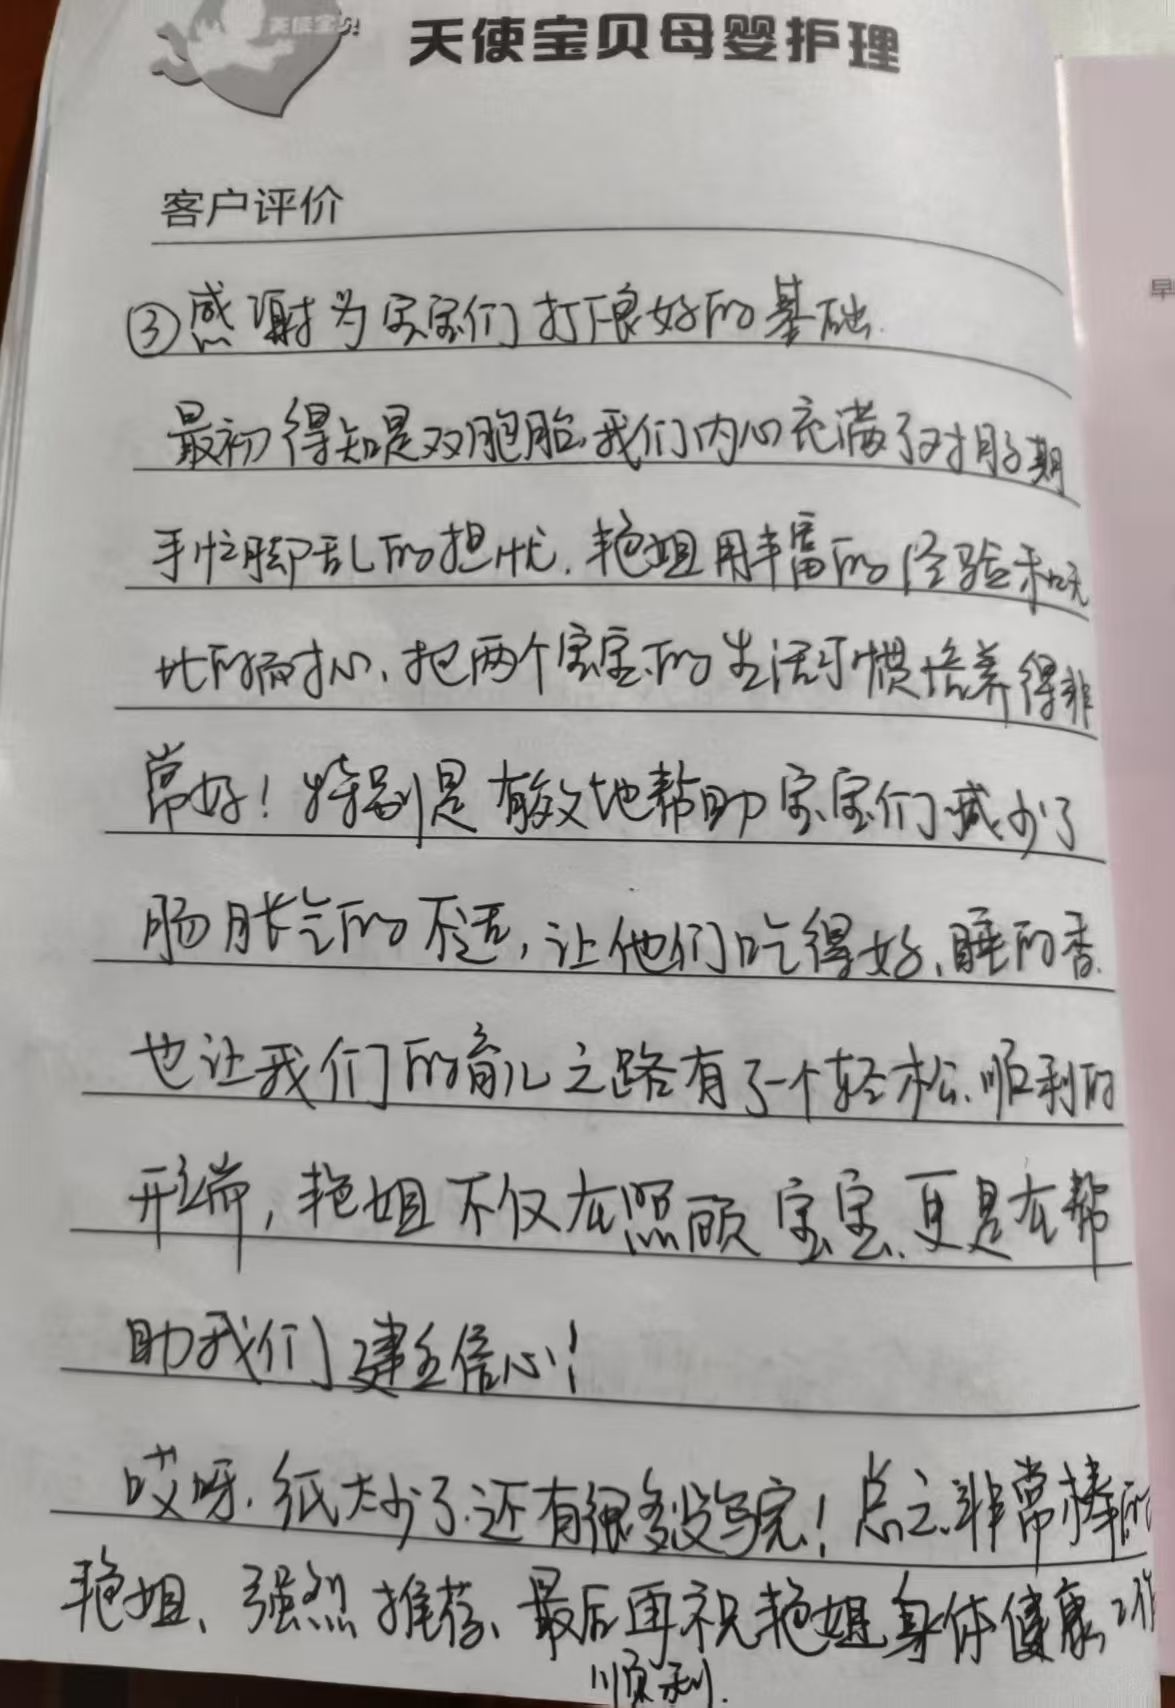 天使宝贝
天使宝贝母婴护理
客户评价
③感谢为宝宝们打下良好的基础.
最初得知是双胞胎,我们内心充满了对月子期
手忙脚乱的担忧.艳姐用丰富的经验和无
比的耐心,把两个宝宝的生活习惯培养得非
常好!特别是有效地帮助宝宝们减少了
肠胀气的不适,让他们吃得好、睡的香.
也让我们的育儿之路有了一个轻松、顺利的
开端,艳姐不仅在照顾宝宝、更是在帮
助我们建立信心!
哎呀.纸太少了.还有很多没写完!总之.非常棒的
艳姐、强烈推荐、最后再祝艳姐身体健康、工作
顺利.
早